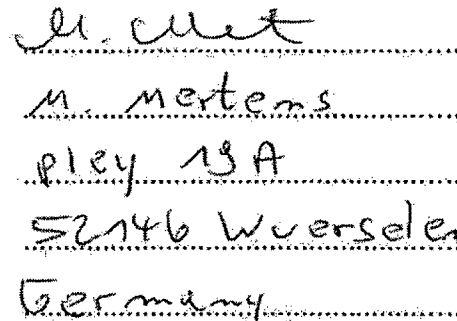 M. Mertens
Pley 19A
52146 Wuerselen
Germany